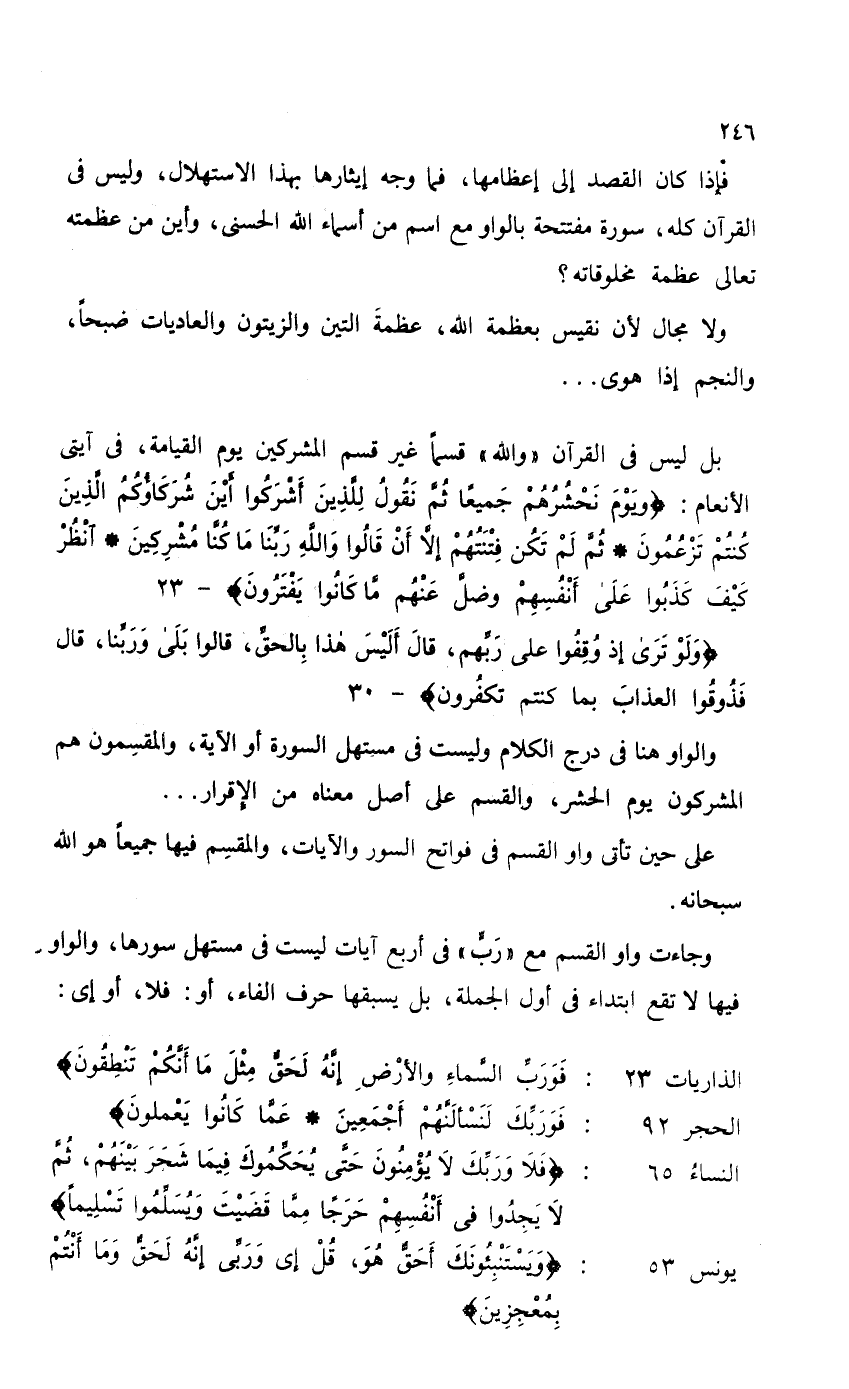 ٢٤٦
فإذا كان القصد إلى إعظامها، فما وجه إيثارها بهذا الاستهلال، وليس فى
القرآن كله، سورة مفتتحة بالواو مع اسم من أسماء الله الحسنى، وأين من عظمته
تعالى عظمة مخلوقاته؟
ولا مجال لأن نقيس بعظمة الله، عظمةَ التين والزيتون والعاديات ضبحاً،
والنجم إذا هوى...
بل ليس فى القرآن «والله» قسماً غير قسم المشركين يوم القيامة، فى آيتى
الأنعام : ﴿ويَوْمَ نَحْشُرُهُمْ جَميعًا ثُمَّ نَقُولُ لِلَّذِينَ أَشْرَكُوا أَيْنَ شُرَكَاؤُكُمُ الَّذِينَ
كُنتُمْ تَزْعُمُونَ * ثُمَّ لَمْ تَكُن فِتْنَتُهُمْ إلَّا أَنْ قَالُوا وَاللَّهِ رَبِّنَا مَا كُنَّا مُشْرِكِينَ * آنْظُرْ
كَيْفَ كَذَبُوا عَلَىٰ أَنْفُسِهِمْ وضلَّ عَنْهُم مَّا كَانُوا يَفْتَرُونَ﴾ - ٢٣
﴿وَلَوْ تَرَىٰ إذ وُقِفُوا على رَبِّهم، قالَ أَلَيْسَ هٰذا بِالحقِّ، قالوا بَلَىٰ وَرَبِّنا، قال
فَذُوقُوا العذابَ بما كنتم تكفُرون﴾ - ٣٠
والواو هنا فى درج الكلام وليست فى مستهل السورة أو الآية، والمقسِمون هم
المشركون يوم الحشر، والقسم على أصل معناه من الإقرار...
على حين تأتى واو القسم فى فواتح السور والآيات، والمقسِم فيها جميعاً هو الله
سبحانه.
وجاءت واو القسم مع «رَبِّ» فى أربع آيات ليست فى مستهل سورها، والواو
فيها لا تقع ابتداء فى أول الجملة، بل يسبقها حرف الفاء، أو: فلا، أو إى:
الذاريات ٢٣ : فَوَرَبِّ السَّماءِ والأرْضِ إنَّهُ لَحَقٌّ مِثْلَ مَا أَنَّكُمْ تَنْطِقُونَ﴾
الحجر ٩٢ : فَوَرَبِّكَ لَنَسْألَنَّهُمْ أَجْمَعِينَ * عَمَّا كَانُوا يَعْملون﴾
النساءُ ٦٥ : ﴿فَلَا وَرَبِّكَ لَا يُؤْمِنُونَ حَتَّى يُحَكِّمُوكَ فِيمَا شَجَرَ بَيْنَهُمْ، ثُمَّ
لَا يَجِدُوا فى أَنْفُسِهِمْ حَرَجًا مِمَّا قَضَيْتَ وَيُسَلِّمُوا تَسْلِيماً﴾
يونس ٥٣ : ﴿وَيَسْتَنْبِئُونَكَ أَحَقٌّ هُوَ، قُلْ إى وَرَبِّى إنَّهُ لَحَقٌّ وَمَا أَنْتُمْ
بِمُعْجِزِينَ﴾